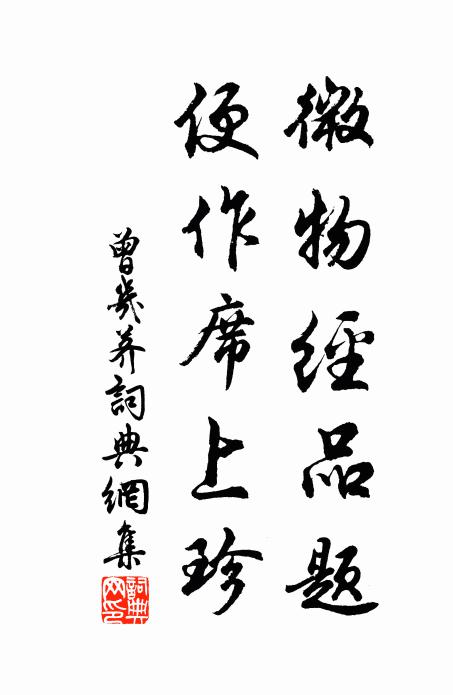 微物經品題
便作席上珍
曾幾并詞典網集
詞典网印